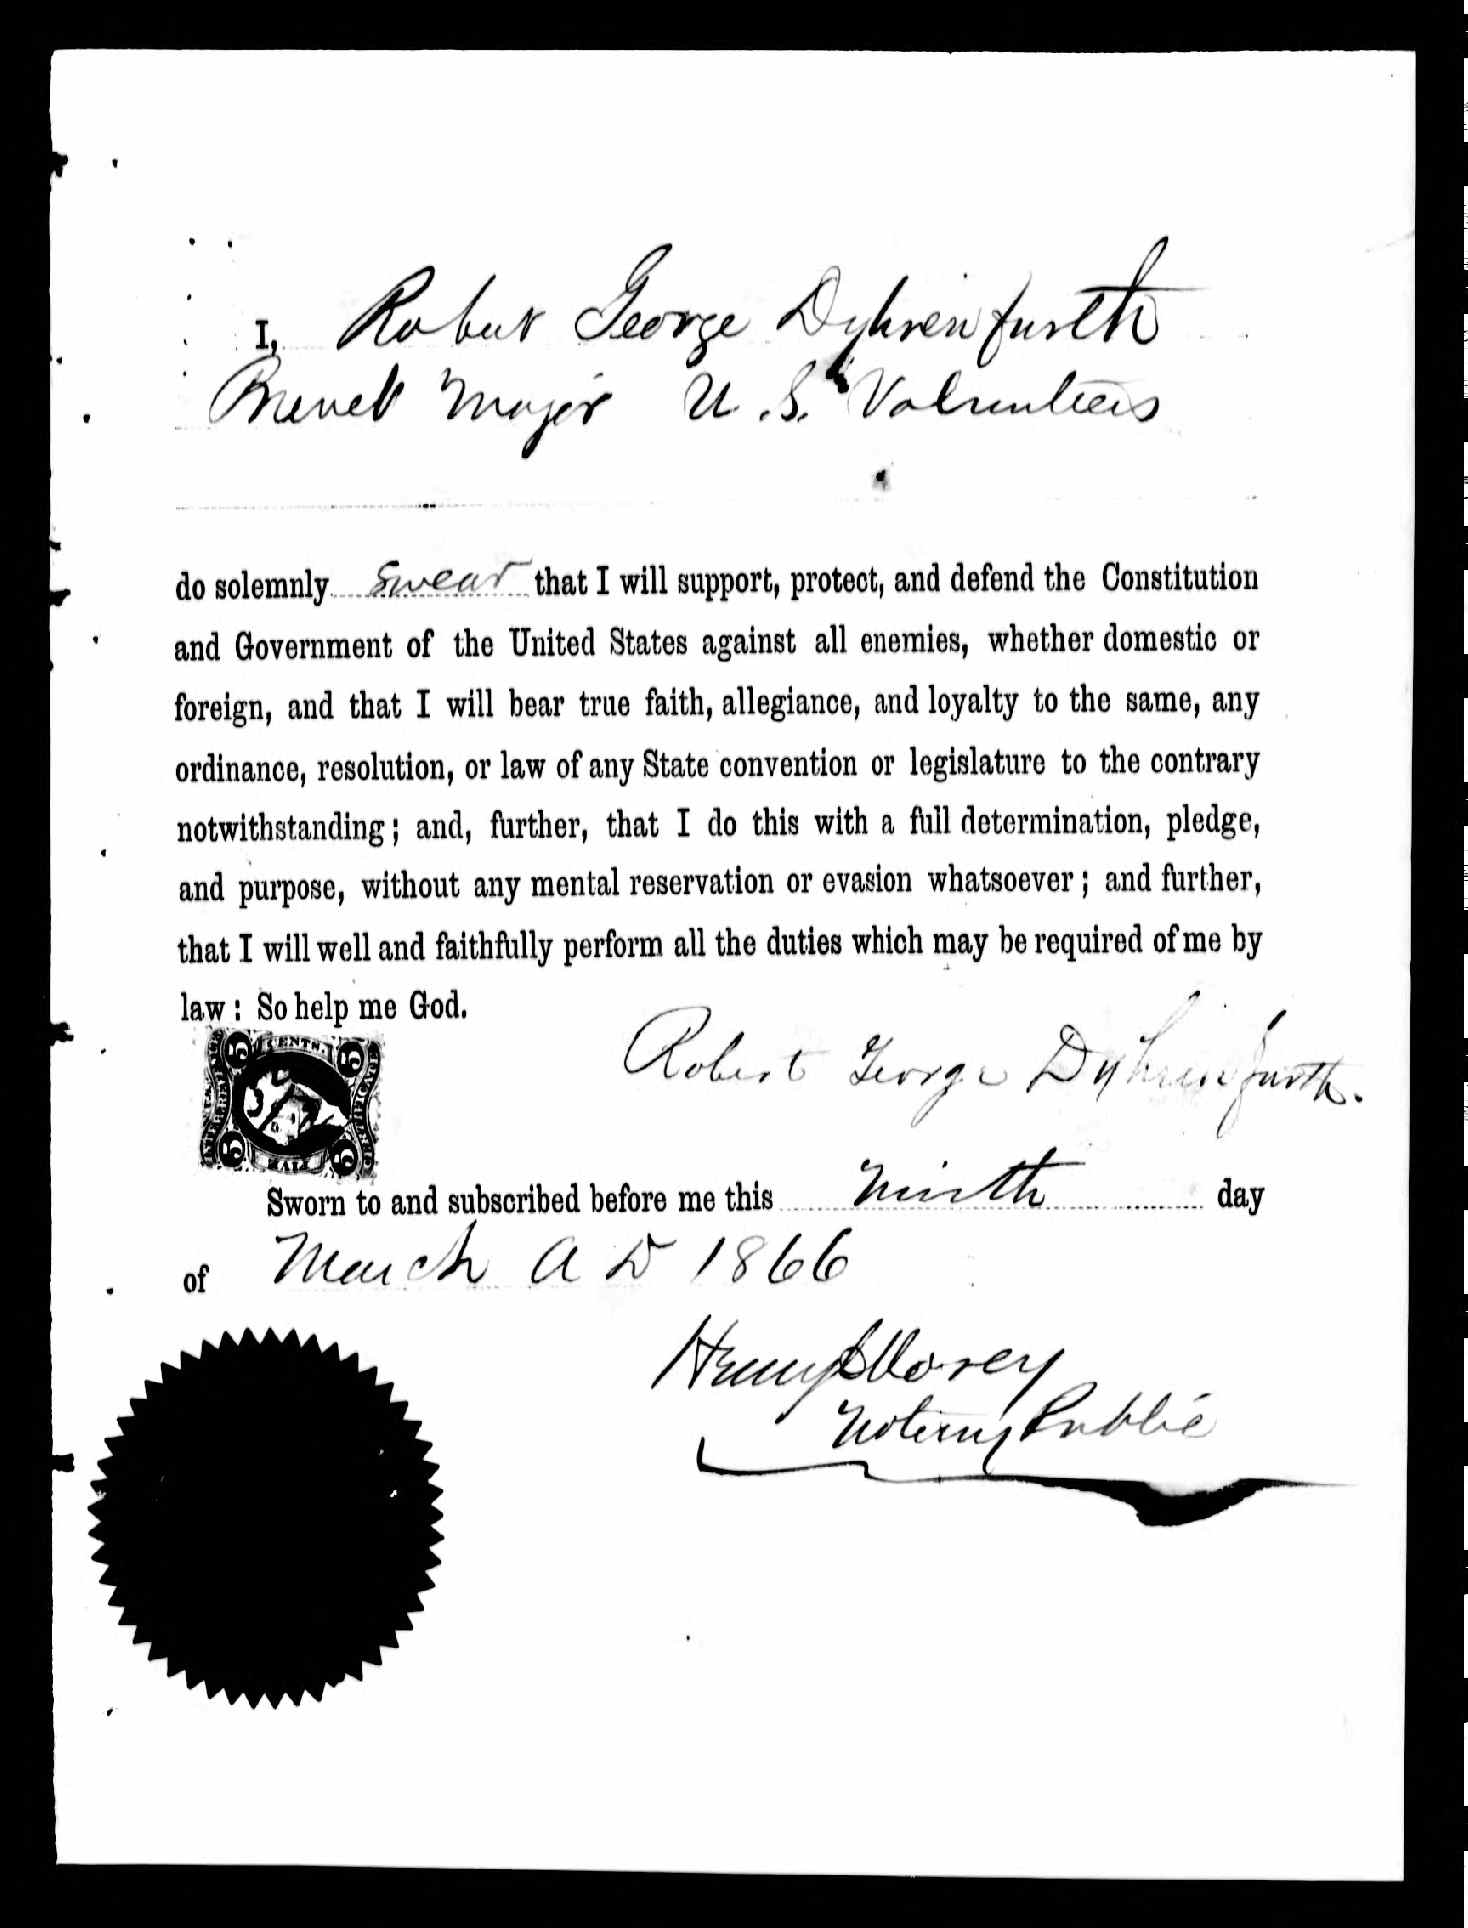 I, Robert George Dyhrenfurth
Brevet Major U.S. Volunteers
do solemnly swear that I will support, protect, and defend the Constitution
and Government of the United States against all enemies, whether domestic or
foreign, and that I will bear true faith, allegiance, and loyalty to the same, any
ordinance, resolution, or law of any State convention or legislature to the contrary
notwithstanding; and, further, that I do this with a full determination, pledge,
and purpose, without any mental reservation or evasion whatsoever; and further,
that I will well and faithfully perform all the duties which may be required of me by
law: So help me God.
5 CENTS. 5
Robert George Dyhrenfurth.
INTER. REV.
CERTIFICATE
5 5
Sworn to and subscribed before me this Ninth day
of March A D 1866
Notary Public